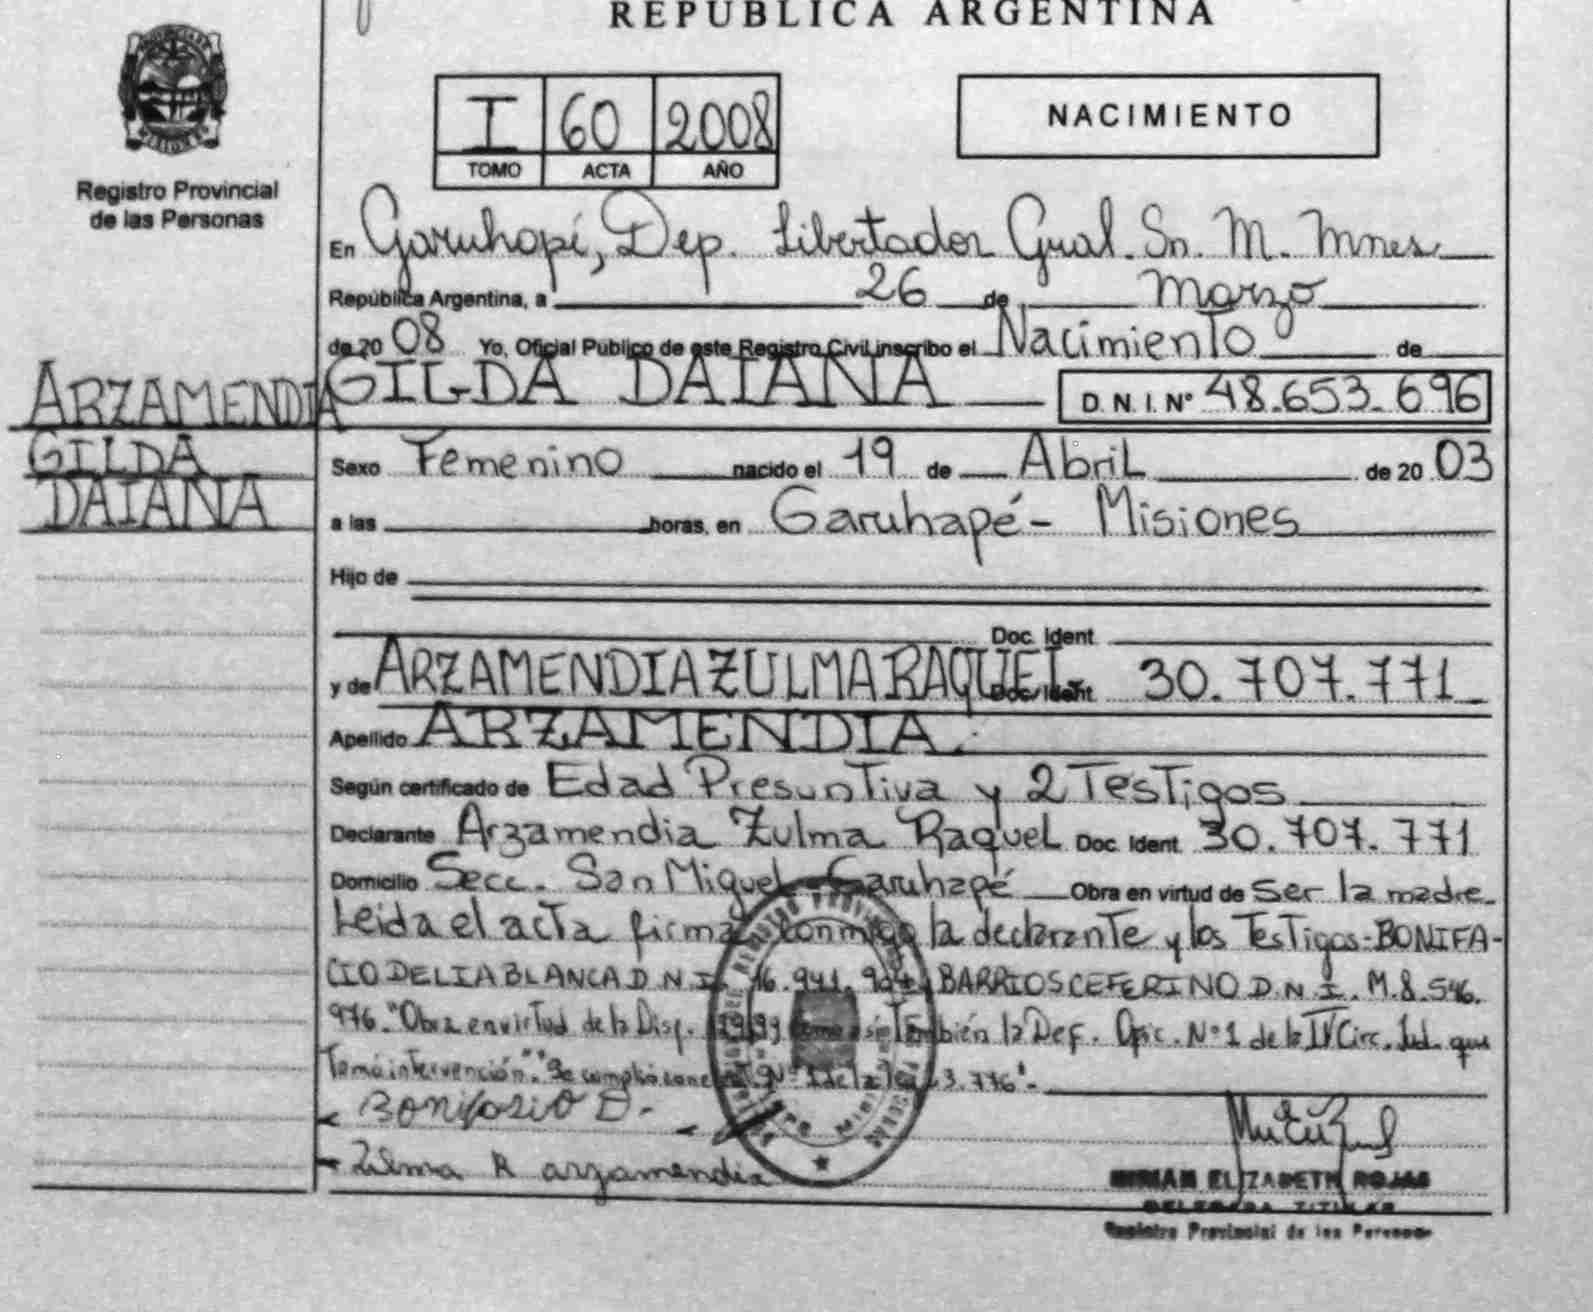 REPUBLICA ARGENTINA
Registro Provincial
de las Personas
I 60 2008
TOMO ACTA AÑO
NACIMIENTO
En Garuhapé, Dep. Libertador Gral. Sn. M. Mnes
República Argentina, a 26 de Marzo
de 20 08 Yo, Oficial Público de este Registro Civil inscribo el Nacimiento de
GILDA DAIANA D.N.I. Nº 48.653.696
ARZAMENDIA
GILDA
DAIANA
Sexo Femenino nacido el 19 de Abril de 20 03
a las horas, en Garuhapé - Misiones
Hijo de
Doc. Ident.
y de ARZAMENDIA ZULMA RAQUEL Doc. Ident. 30.707.771
Apellido ARZAMENDIA.
Según certificado de Edad Presuntiva y 2 Testigos
Declarante Arzamendia Zulma Raquel Doc. Ident. 30.707.771
Domicilio Secc. San Miguel - Garuhapé Obra en virtud de Ser la madre.
Leida el acta firma conmigo la declarante y los Testigos - BONIFA-
CIO DELIA BLANCA D.N.I. BARRIOS CEFERINO D.N.I. M.8.546.
976. "Obra en virtud de la Disp. también la Def. Ofic. Nº 1 de la IV Circ. Jud. que
Tomó intervención". "Se cumplió con
Bonifasio D.
Zulma R arzamendia
MIRIAM ELIZABETH ROJAS
DELEGADA TITULAR
Registro Provincial de las Personas